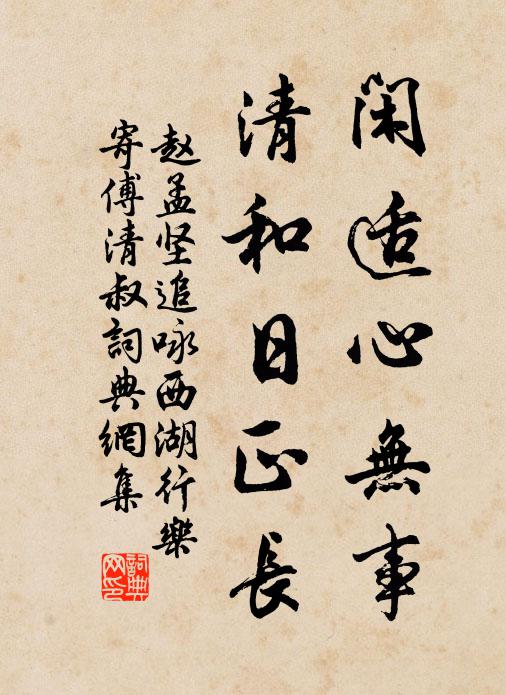 闲适心無事
清和日正長
赵孟坚追咏西湖行樂
寄傅清叔詞典網集
詞典网印